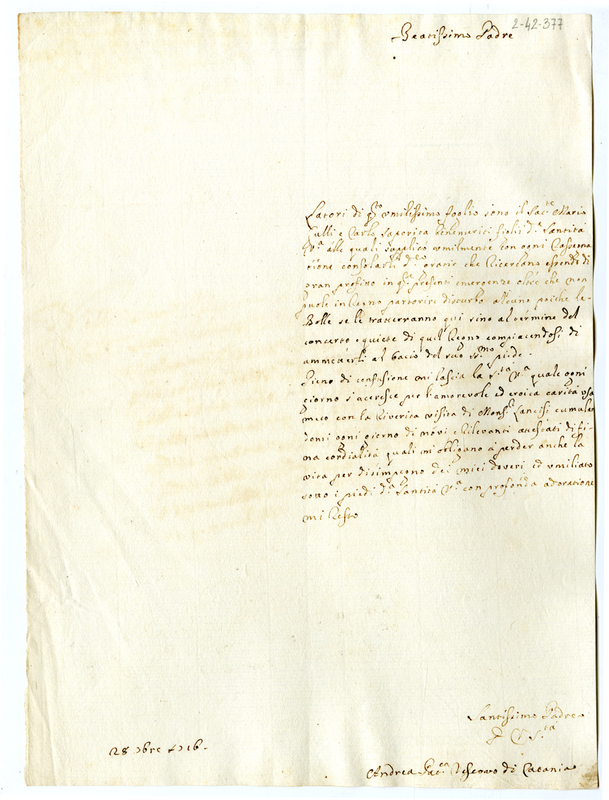 2-42-377
Beatissimo Padre
Latori di q.to umilissimo foglio sono il Sac.te Mario
Cutelli e Carlo benemeriti figli di Santità
V.ra alle quali supplico umilmente con ogni
consolarli gratie che
gran profitto in q.te presenti emergenze oltre che non
puole in Regno partorire disturbo alcuno poiche le
Bolle se le trascerranno qui sino al termine del
concerto e quiete di quel Regno compiacendosi di
ammetterli al bacio del suo SS.mo piede.
Pieno di confusione mi lascia la S.tà V.ra quale ogni
giorno s'accresce per l'amorevole ed eroica carità usa
meco con la riverita visita di Mons.r Lancisi cumulan
domi ogni giorno di novi rilevanti attestati di fi-
na cordialità quali mi obligano à perder anche la
vita per disimpegno de i miei doveri ed umiliato
sotto i piedi di Santità V.ra con profonda adoratione
mi resto
Santissimo Padre
D. V. S.tà
28 9bre 1716.
Andrea Vescovo di Catania